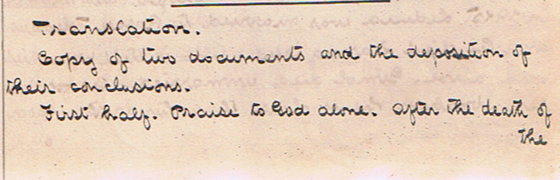 Translation.
Copy of two documents and the deposition of
their conclusions.
First half. Praise to God alone. After the death of
the